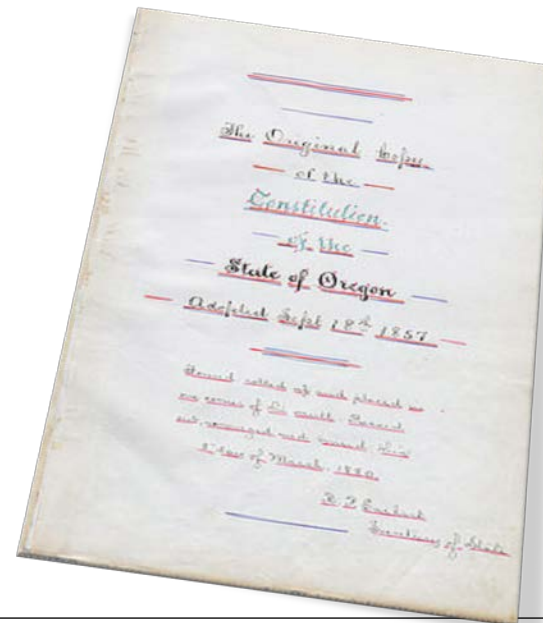 The Original Copy
of the
Constitution
of the
State of Oregon
Adopted Sept 18th 1857
Found rolled up and placed in
Bound
arranged and bound this
day of March. 1880.
R. P. Earhart
Secretary of State